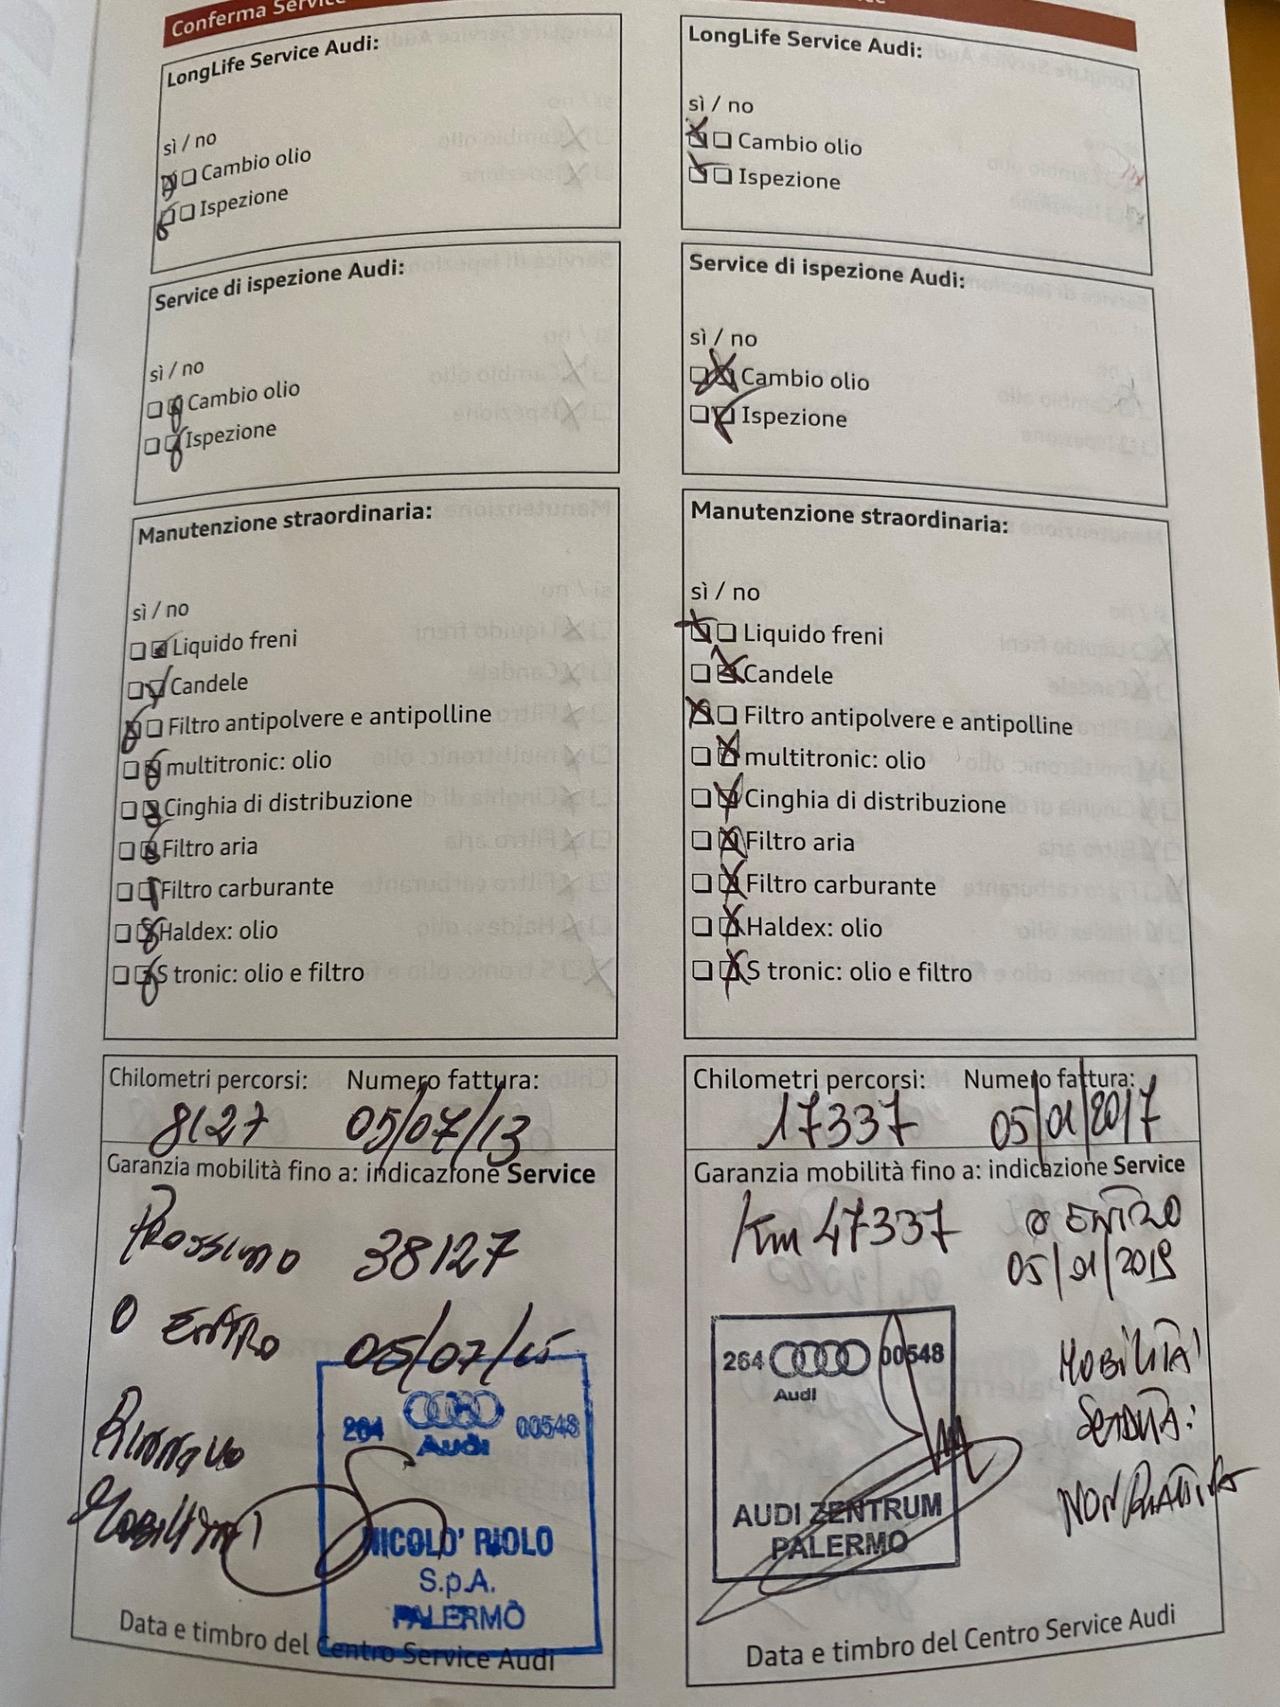 Conferma Service
LongLife Service Audi:
sì / no
Cambio olio
Ispezione
Service di ispezione Audi:
sì / no
Cambio olio
Ispezione
Manutenzione straordinaria:
sì / no
Liquido freni
Candele
Filtro antipolvere e antipolline
multitronic: olio
Cinghia di distribuzione
Filtro aria
Filtro carburante
Haldex: olio
S tronic: olio e filtro
Chilometri percorsi: Numero fattura:
8127 05/07/13
Garanzia mobilità fino a: indicazione Service
Prossimo 38127
o Entro 05/07/15
Rinnovo
Mobilità
264 00548
Audi
NICOLO' RIOLO
S.p.A.
PALERMO
Data e timbro del Centro Service Audi
LongLife Service Audi:
sì / no
Cambio olio
Ispezione
Service di ispezione Audi:
sì / no
Cambio olio
Ispezione
Manutenzione straordinaria:
sì / no
Liquido freni
Candele
Filtro antipolvere e antipolline
multitronic: olio
Cinghia di distribuzione
Filtro aria
Filtro carburante
Haldex: olio
S tronic: olio e filtro
Chilometri percorsi: Numero fattura:
17337 05/01/2017
Garanzia mobilità fino a: indicazione Service
Km 47337 o ENTRO
05/01/2019
MOBILITA'
SCADUTA:
NON RIATTIVATA
264 00548
Audi
AUDI ZENTRUM
PALERMO
Data e timbro del Centro Service Audi